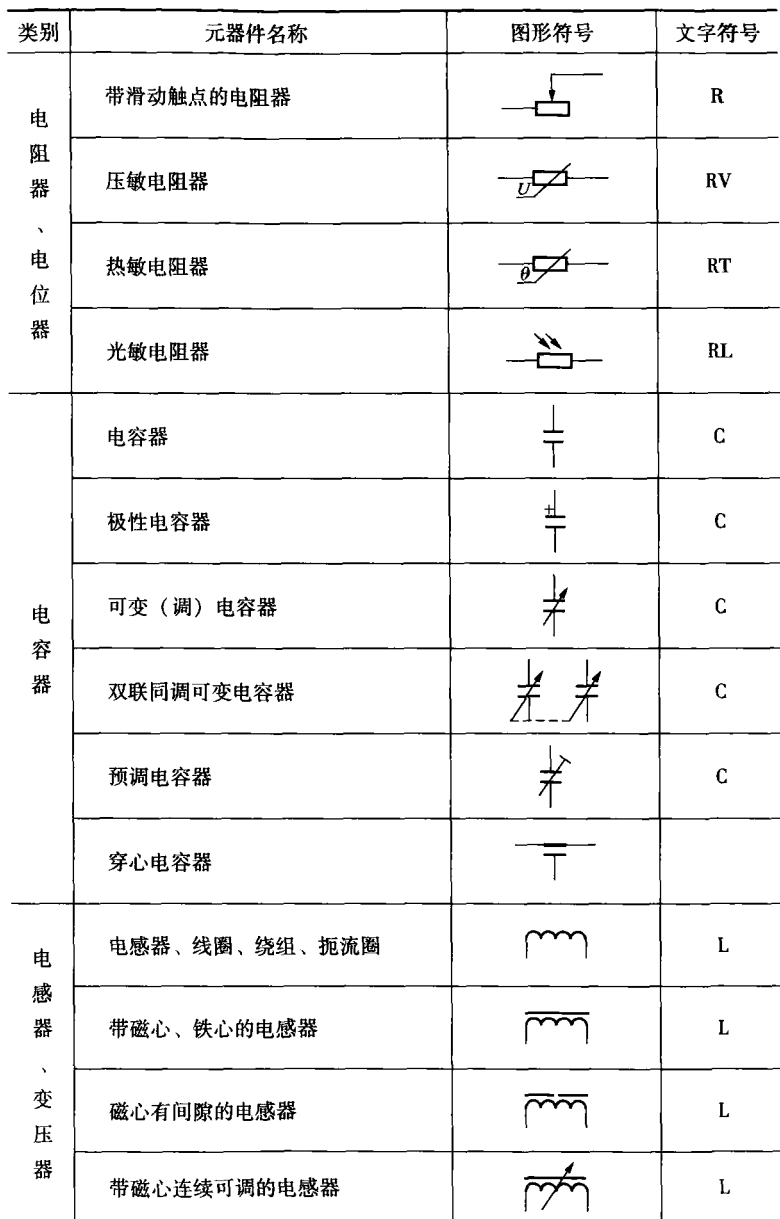 类别 元器件名称 图形符号 文字符号
电阻器、电位器
带滑动触点的电阻器 R
压敏电阻器 U RV
热敏电阻器 θ RT
光敏电阻器 RL
电容器
电容器 C
极性电容器 + C
可变（调）电容器 C
双联同调可变电容器 C
预调电容器 C
穿心电容器
电感器、变压器
电感器、线圈、绕组、扼流圈 L
带磁心、铁心的电感器 L
磁心有间隙的电感器 L
带磁心连续可调的电感器 L